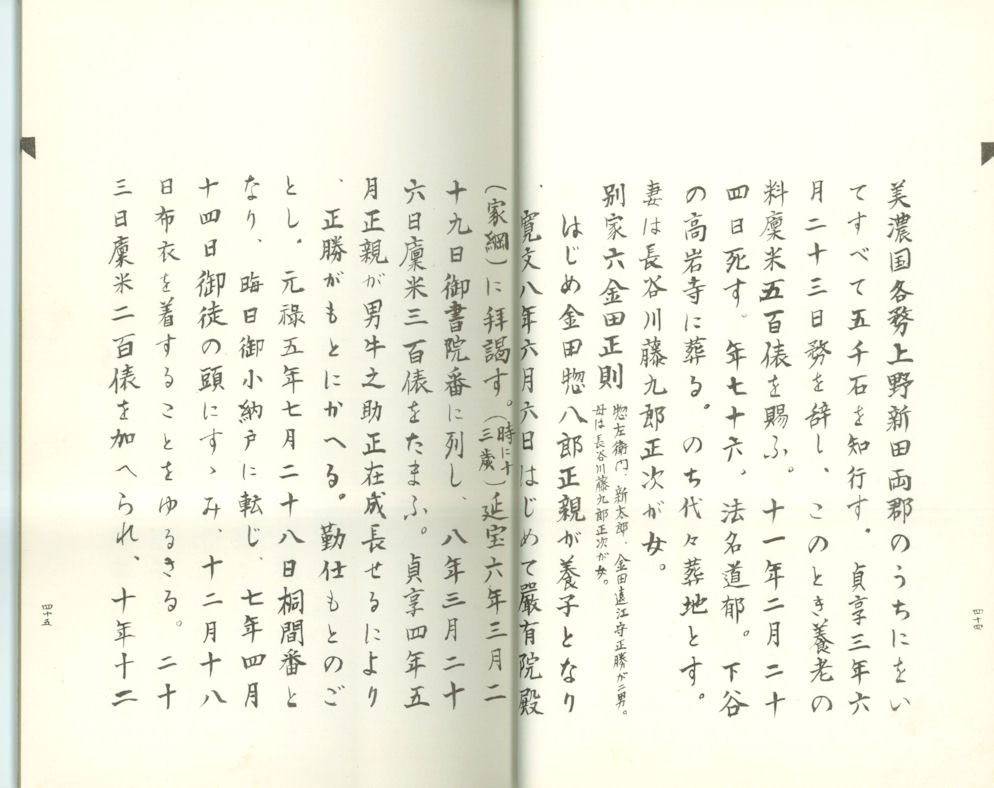 美濃国各務上野新田両郡のうちにをい
てすべて五千石を知行す。貞享三年六
月二十三日務を辞し、このとき養老の
料廩米五百俵を賜ふ。十一年二月二十
四日死す。年七十六、法名道郁。下谷
の高岩寺に葬る。のち代々葬地とす。
妻は長谷川藤九郎正次が女。
別家六金田正則
惣左衛門、新太郎、金田遠江守正勝が二男。
母は長谷川藤九郎正次が女。
はじめ金田惣八郎正親が養子となり
、寛文八年六月六日はじめて嚴有院殿
(家綱)に拝謁す。(時に十三歳)延宝六年三月二
十九日御書院番に列し、八年三月二十
六日廩米三百俵をたまふ。貞享四年五
月正親が男牛之助正在成長せるにより
、正勝がもとにかへる。勤仕もとのご
とし。元祿五年七月二十八日桐間番と
なり、晦日御小納戸に転じ、七年四月
十四日御徒の頭にすゝみ、十二月十八
日布衣を着することをゆるさる。二十
三日廩米二百俵を加へられ、十年十二
四十四
四十五